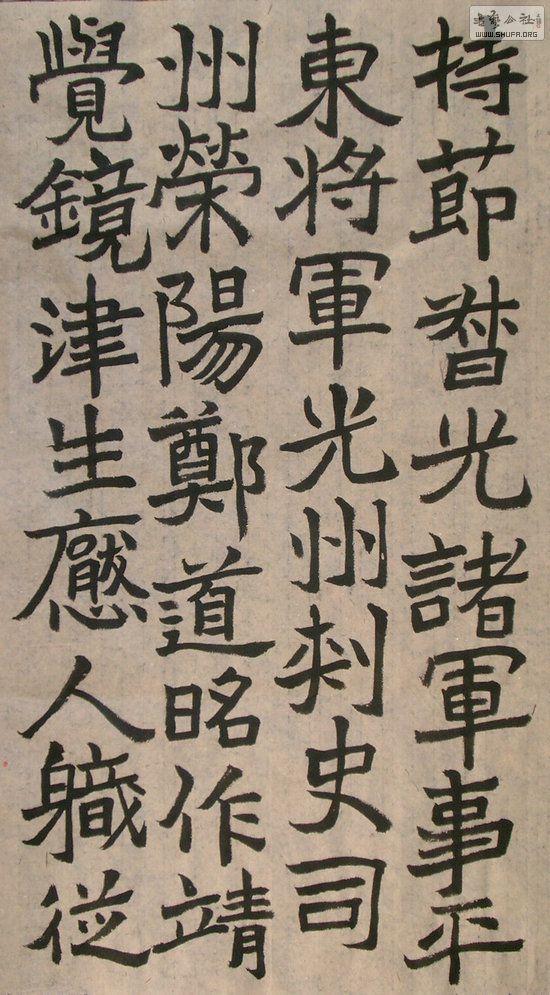 持節督光諸軍事平
東将軍光州刺史司
州榮陽鄭道昭作靖
覺鏡津生應人軄從
WWW.SHUFA.ORG